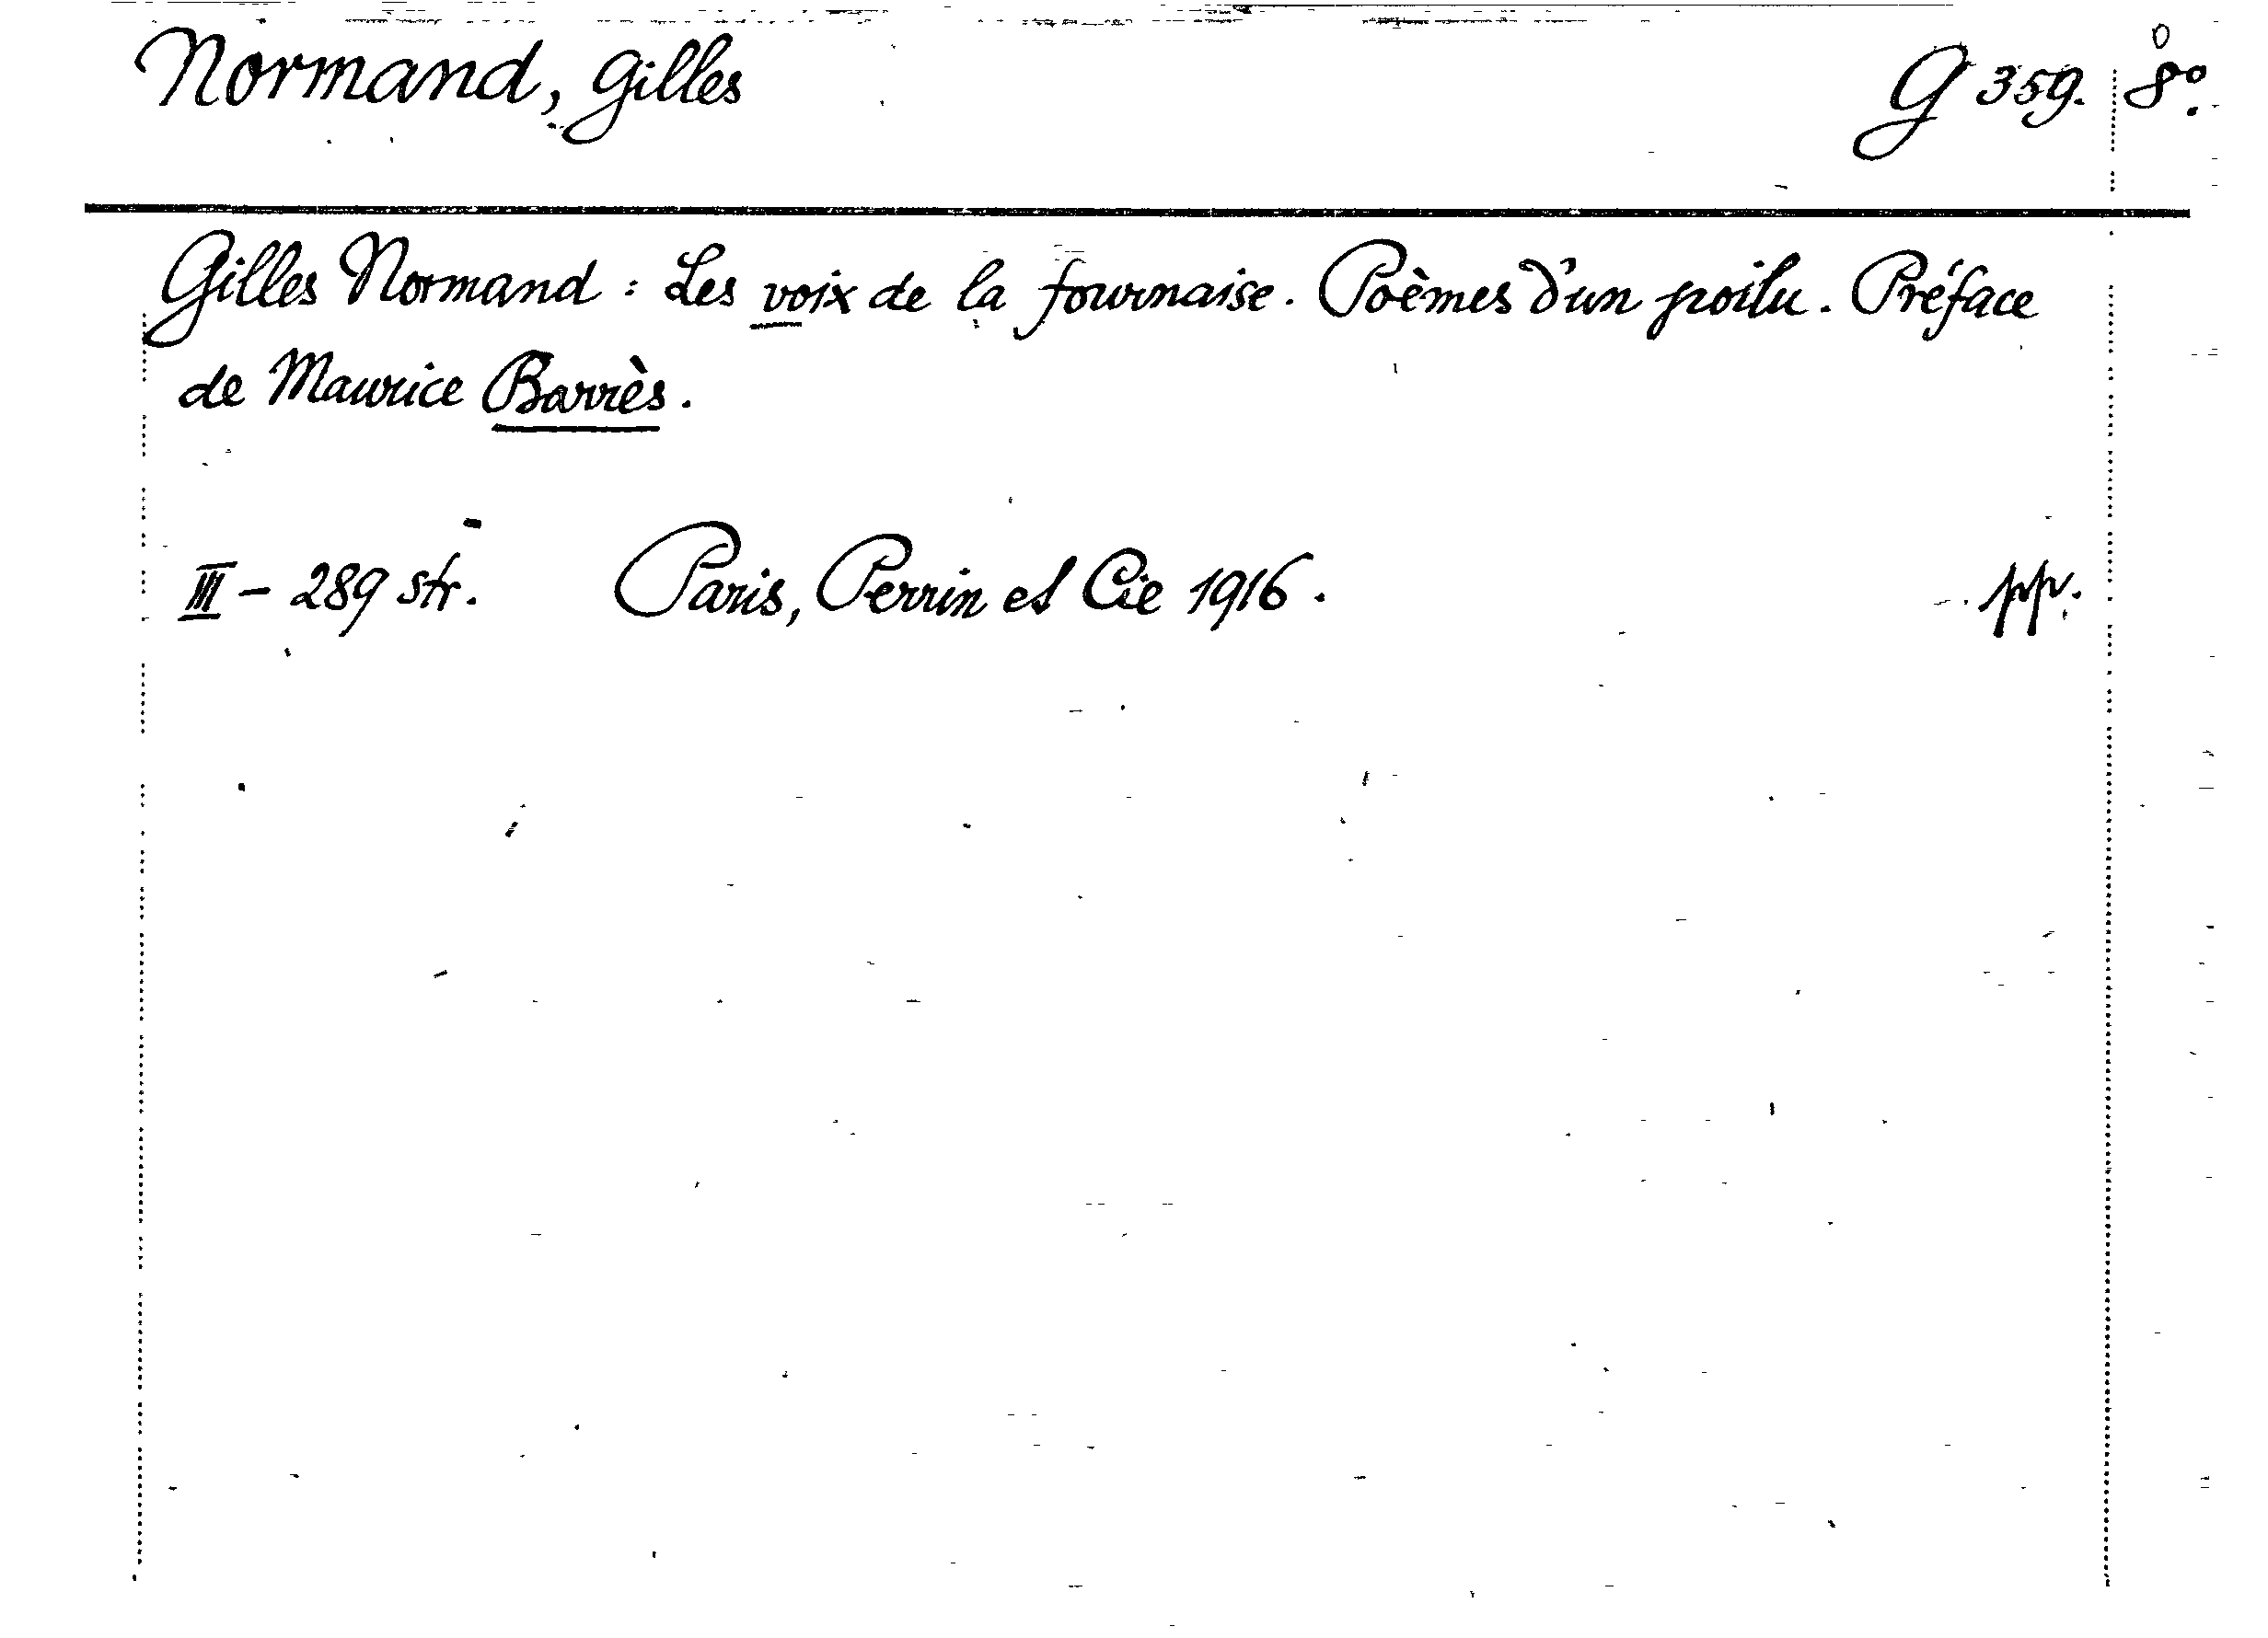 Normand, Gilles G 359. 8°.
Gilles Normand : Les voix de la fournaise. Poèmes d'un poilu. Préface
de Maurice Barrès.
III - 289 str. Paris, Perrin et Cie 1916. pp.